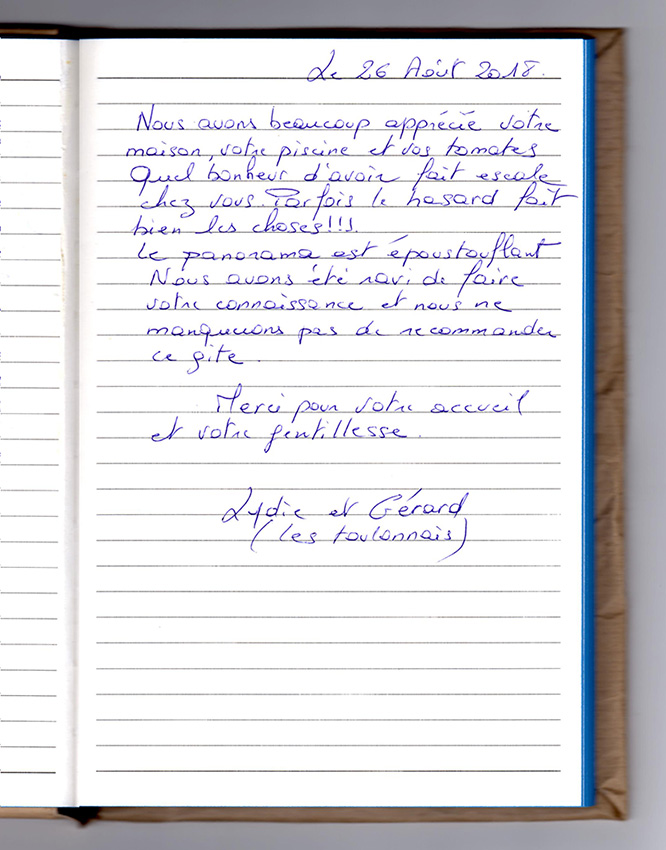 Le 26 Août 2018.
Nous avons beaucoup apprécié votre
maison, votre piscine et vos tomates
Quel bonheur d'avoir fait escale
chez vous. Parfois le hasard fait
bien les choses!!!.
Le panorama est époustouflant
Nous avons été ravi de faire
votre connaissance et nous ne
manquerons pas de recommander
ce gite.
Merci pour votre accueil
et votre gentillesse.
Lydie et Gérard
(les toulonnais)